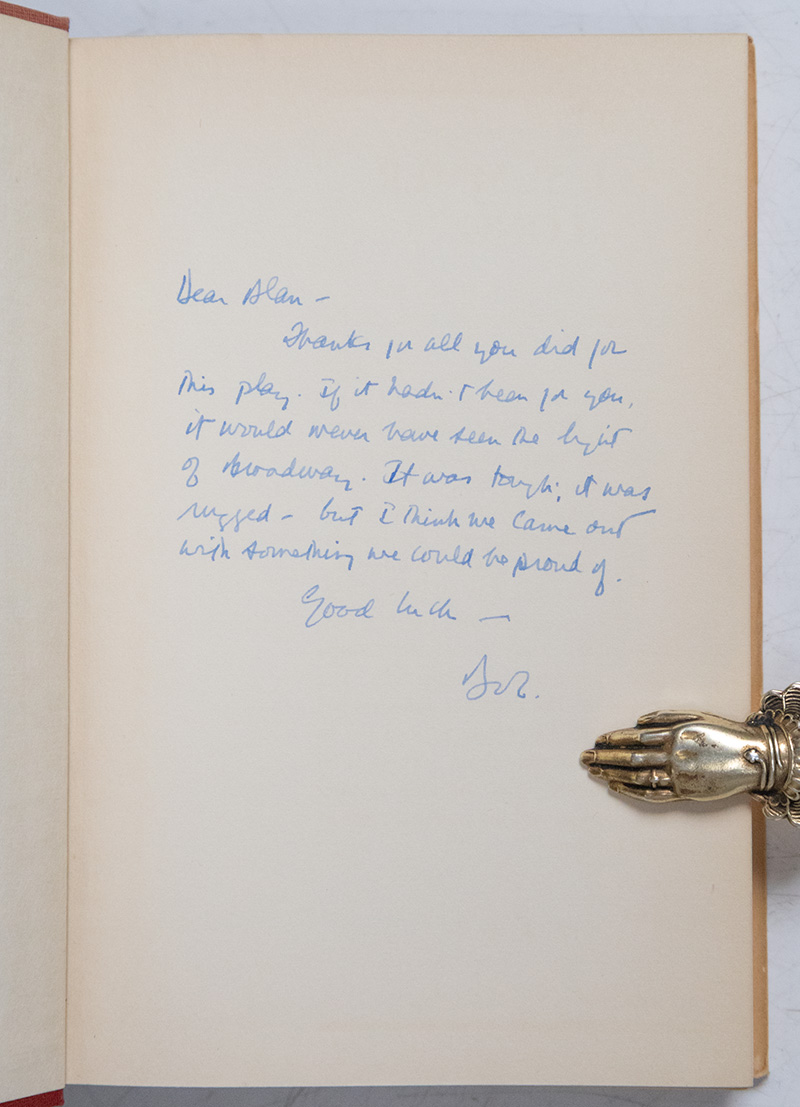 Dear Alan –
Thanks for all you did for
this play. If it hadn't been for you,
it would never have seen the light
of Broadway. It was tough; it was
rugged – but I think we came out
with something we could be proud of.
Good luck –
Bob.